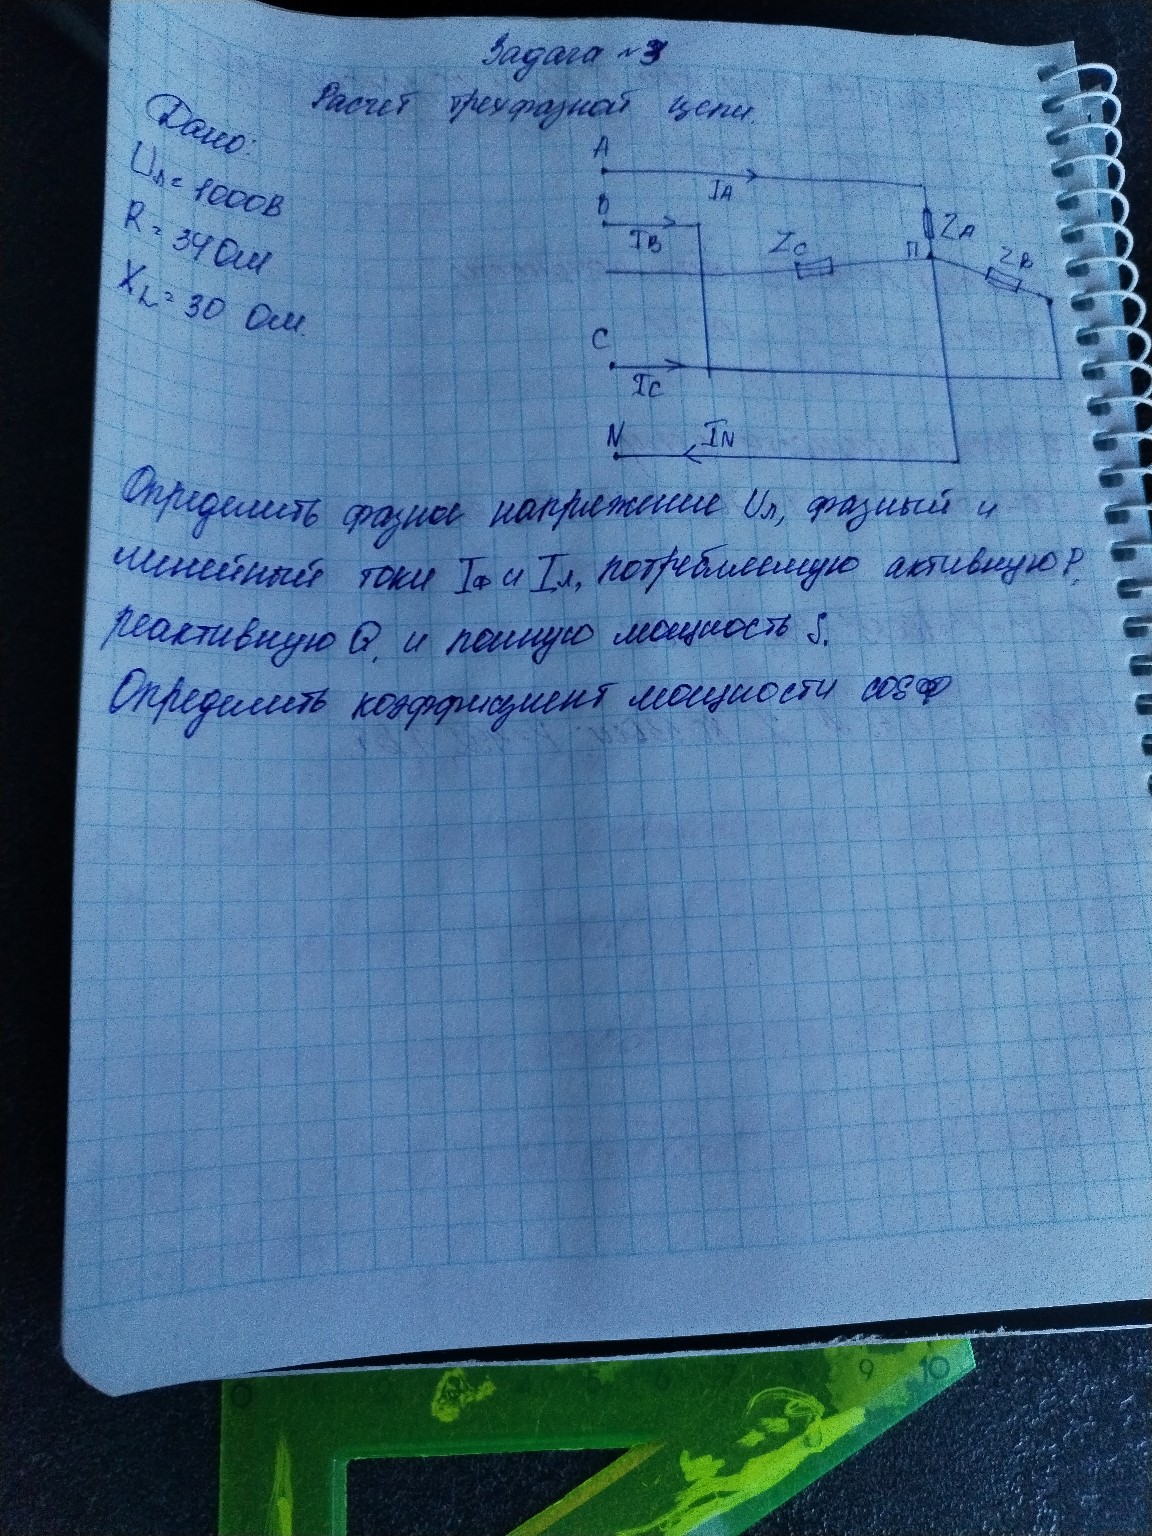 Задача №3
Расчет трехфазной цепи.
Дано:
Uл = 1000В
R = 34 Ом
XL = 30 Ом.
A
IA
B
IB
ZC
n
ZA
ZB
C
IC
N
IN
Определить фазное напряжение Uл, фазный и
линейный токи Iф и Iл, потребляемую активную P,
реактивную Q, и полную мощность S.
Определить коэффициент мощности cosφ
0
5
6
7
8
9
10